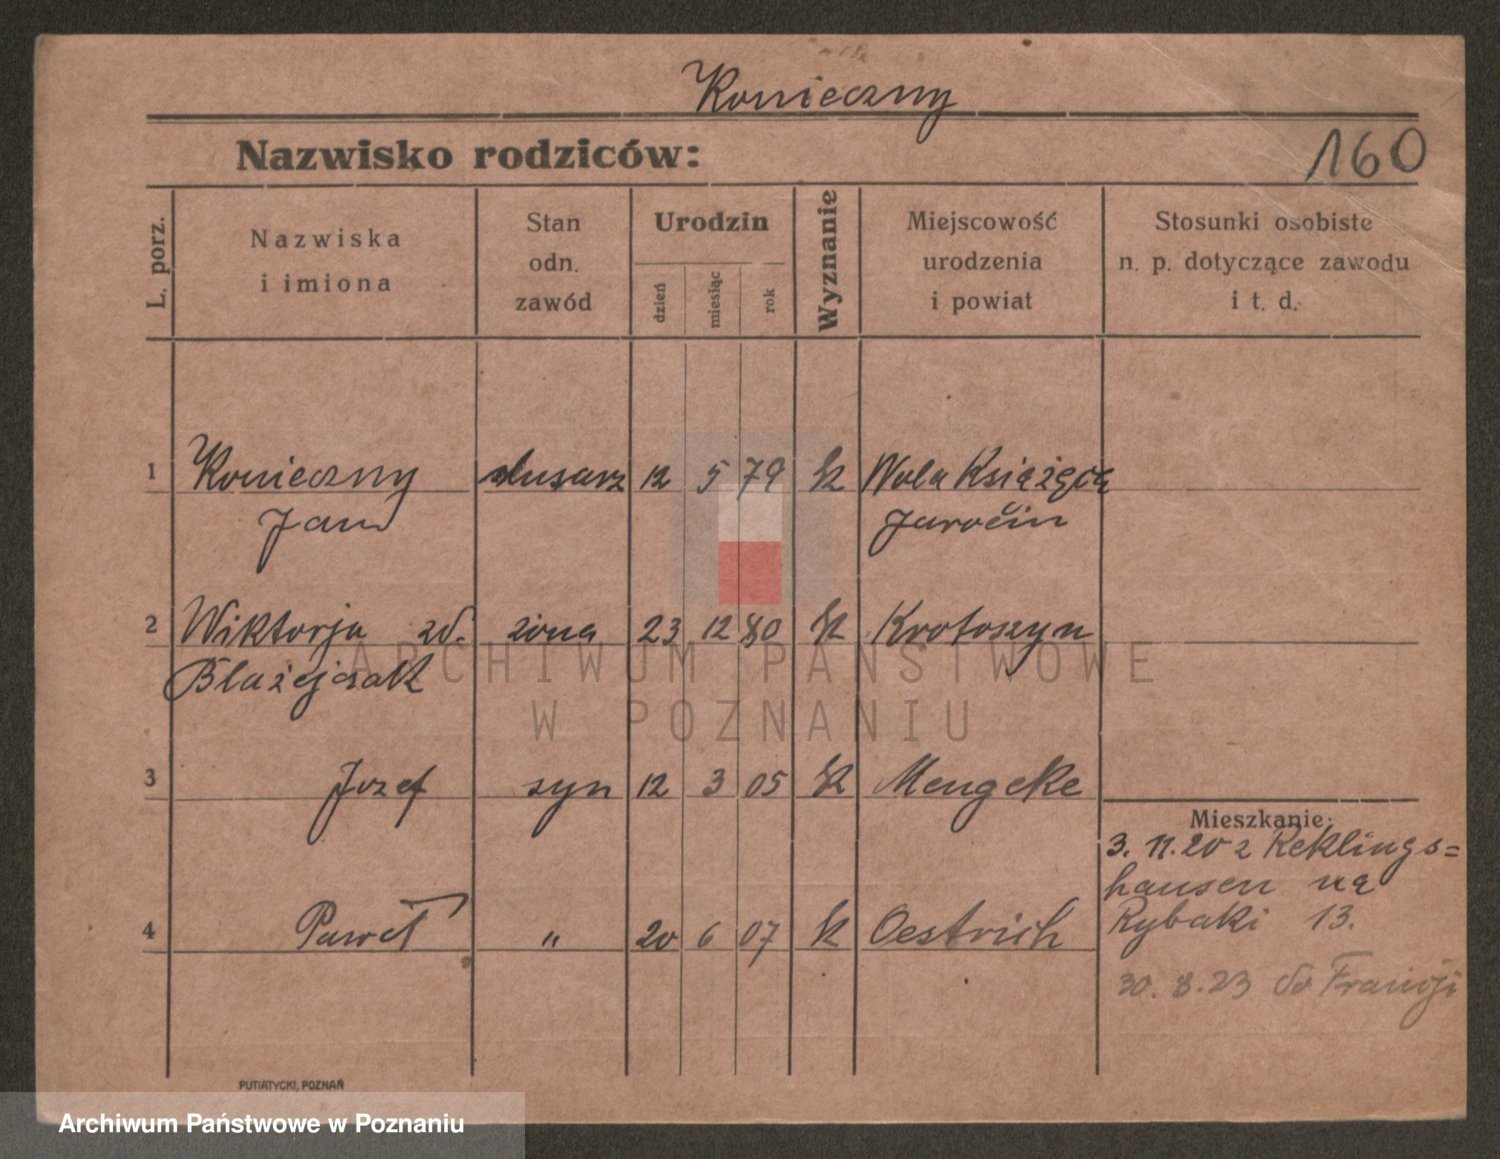 Konieczny
Nazwisko rodziców:
160
L. porz.
Nazwiska
i imiona
Stan
odn.
zawód
Urodzin
dzień
miesiąc
rok
Wyznanie
Miejscowość
urodzenia
i powiat
Stosunki osobiste
n. p. dotyczące zawodu
i t. d.
1 Konieczny ślusarz 12 5 79 k Wola Książęca
Jan Jarocin
2 Wiktorja zd. żona 23 12 80 k Krotoszyn
Błażejczak
3 Jozef syn 12 3 05 k Mengeke
Mieszkanie:
3. 11. 20 z Reklings=
hausen na
Rybaki 13.
4 Paweł " 20 6 07 k Oestrich
30. 8. 23 do Francji
PUTIATYCKI, POZNAŃ
ARCHIWUM PAŃSTWOWE
W POZNANIU
Archiwum Państwowe w Poznaniu